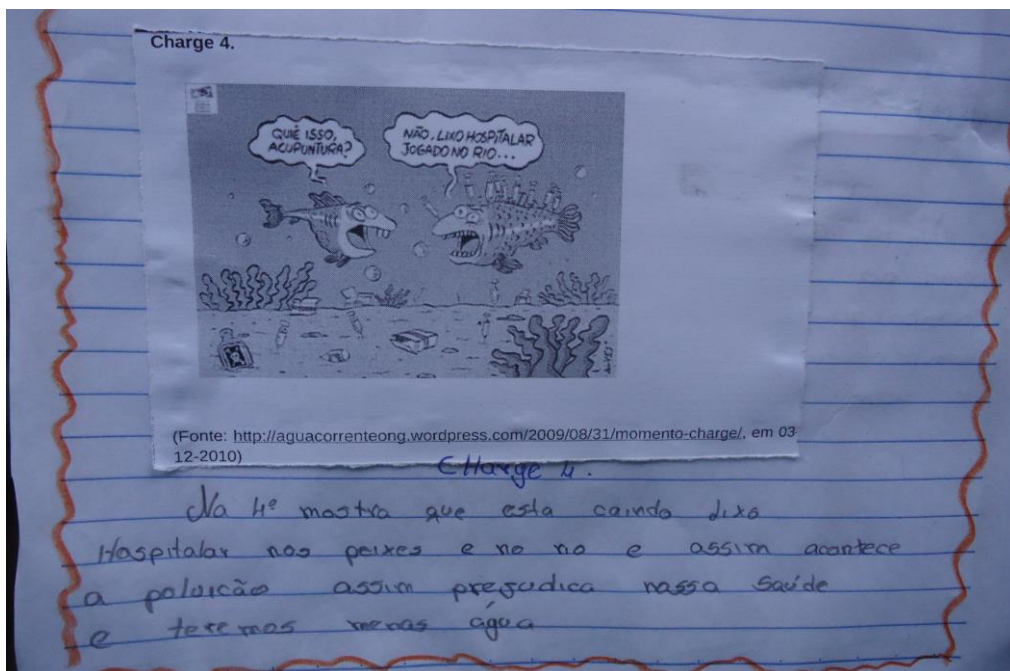 Charge 4.
QUIÉ ISSO,
ACUPUNTURA?
NÃO, LIXO HOSPITALAR
JOGADO NO RIO...
(Fonte: http://aguacorrenteong.wordpress.com/2009/08/31/momento-charge/, em 03-
12-2010)
CHarge 4.
Na 4ª mostra que esta caindo lixo
Hospitalar nos peixes e no rio e assim acontece
a poluicão assim prejudica nossa Saúde
e teremos menas água